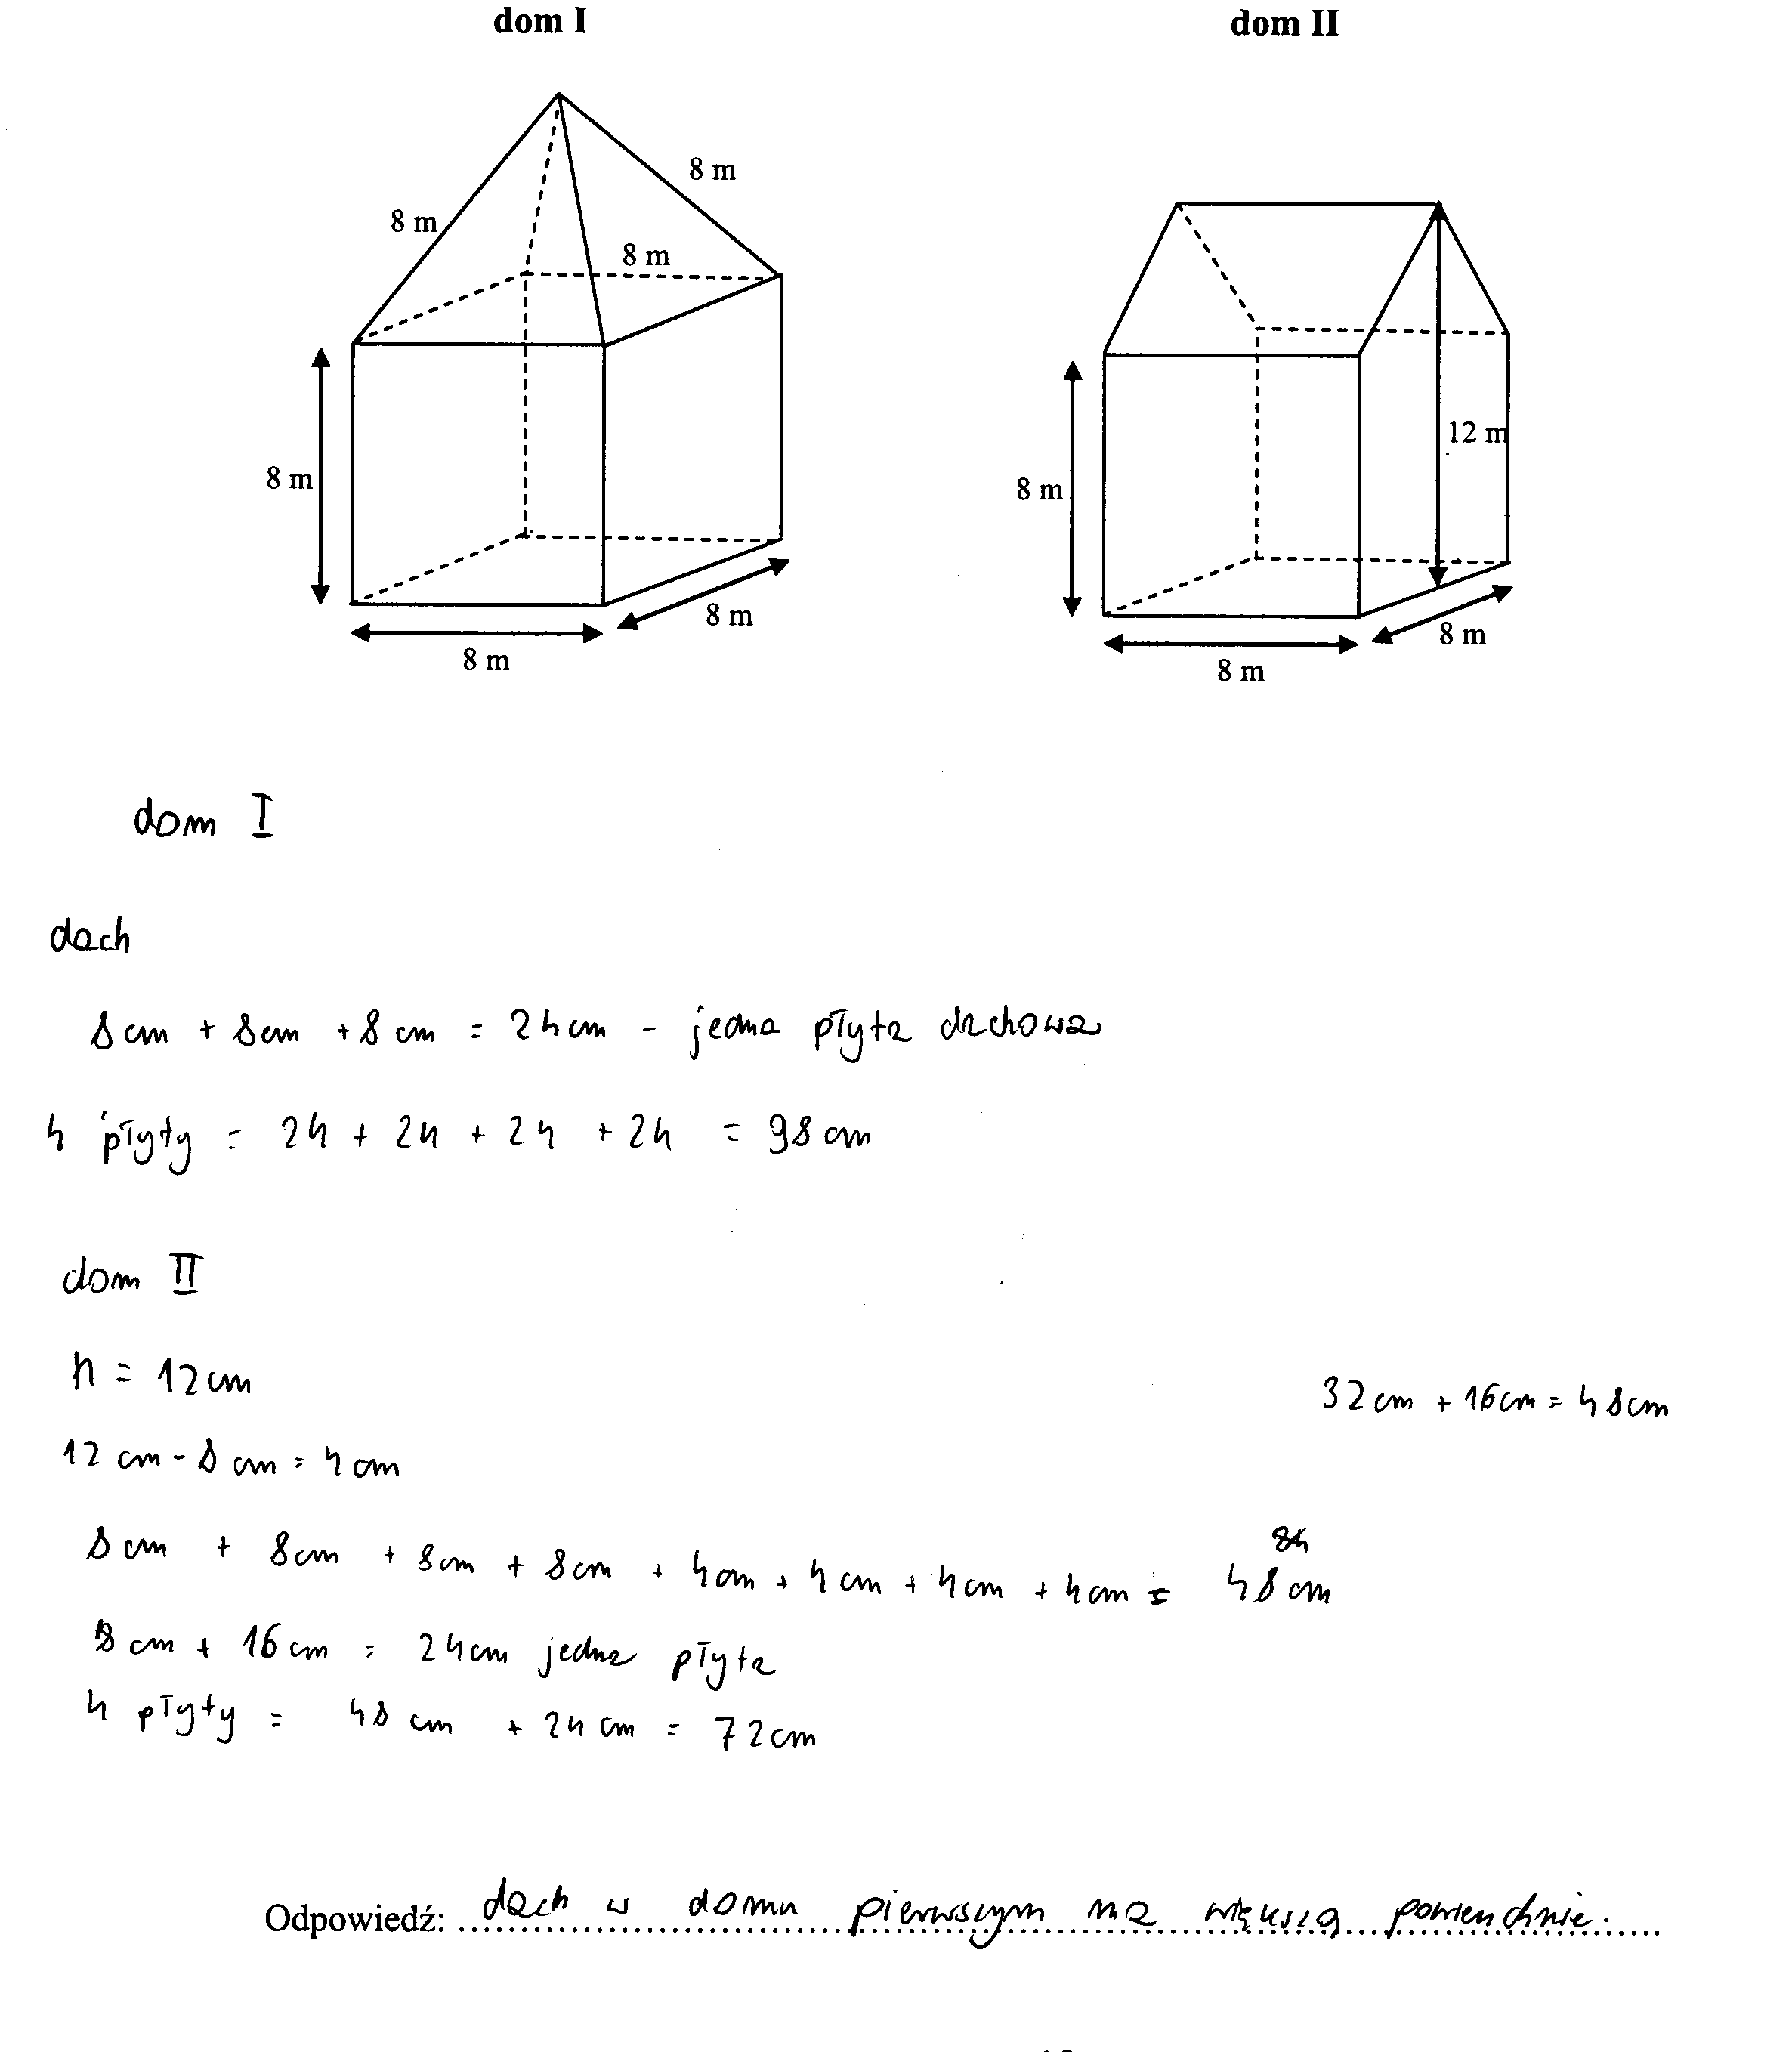 dom I
dom II
8 m
8 m
8 m
8 m
8 m
8 m
8 m
12 m
8 m
8 m
dom I
dach
8 cm + 8 cm + 8 cm = 24 cm - jedna płyta dachowa
4 płyty = 24 + 24 + 24 + 24 = 98 cm
dom II
h = 12 cm
32 cm + 16 cm = 48 cm
12 cm - 8 cm = 4 cm
8 cm + 8 cm + 8 cm + 8 cm + 4 cm + 4 cm + 4 cm + 4 cm = 48 cm
8 cm + 16 cm = 24 cm jedna płyta
4 płyty = 48 cm + 24 cm = 72 cm
Odpowiedź: dach w domu pierwszym ma większą powierzchnie.